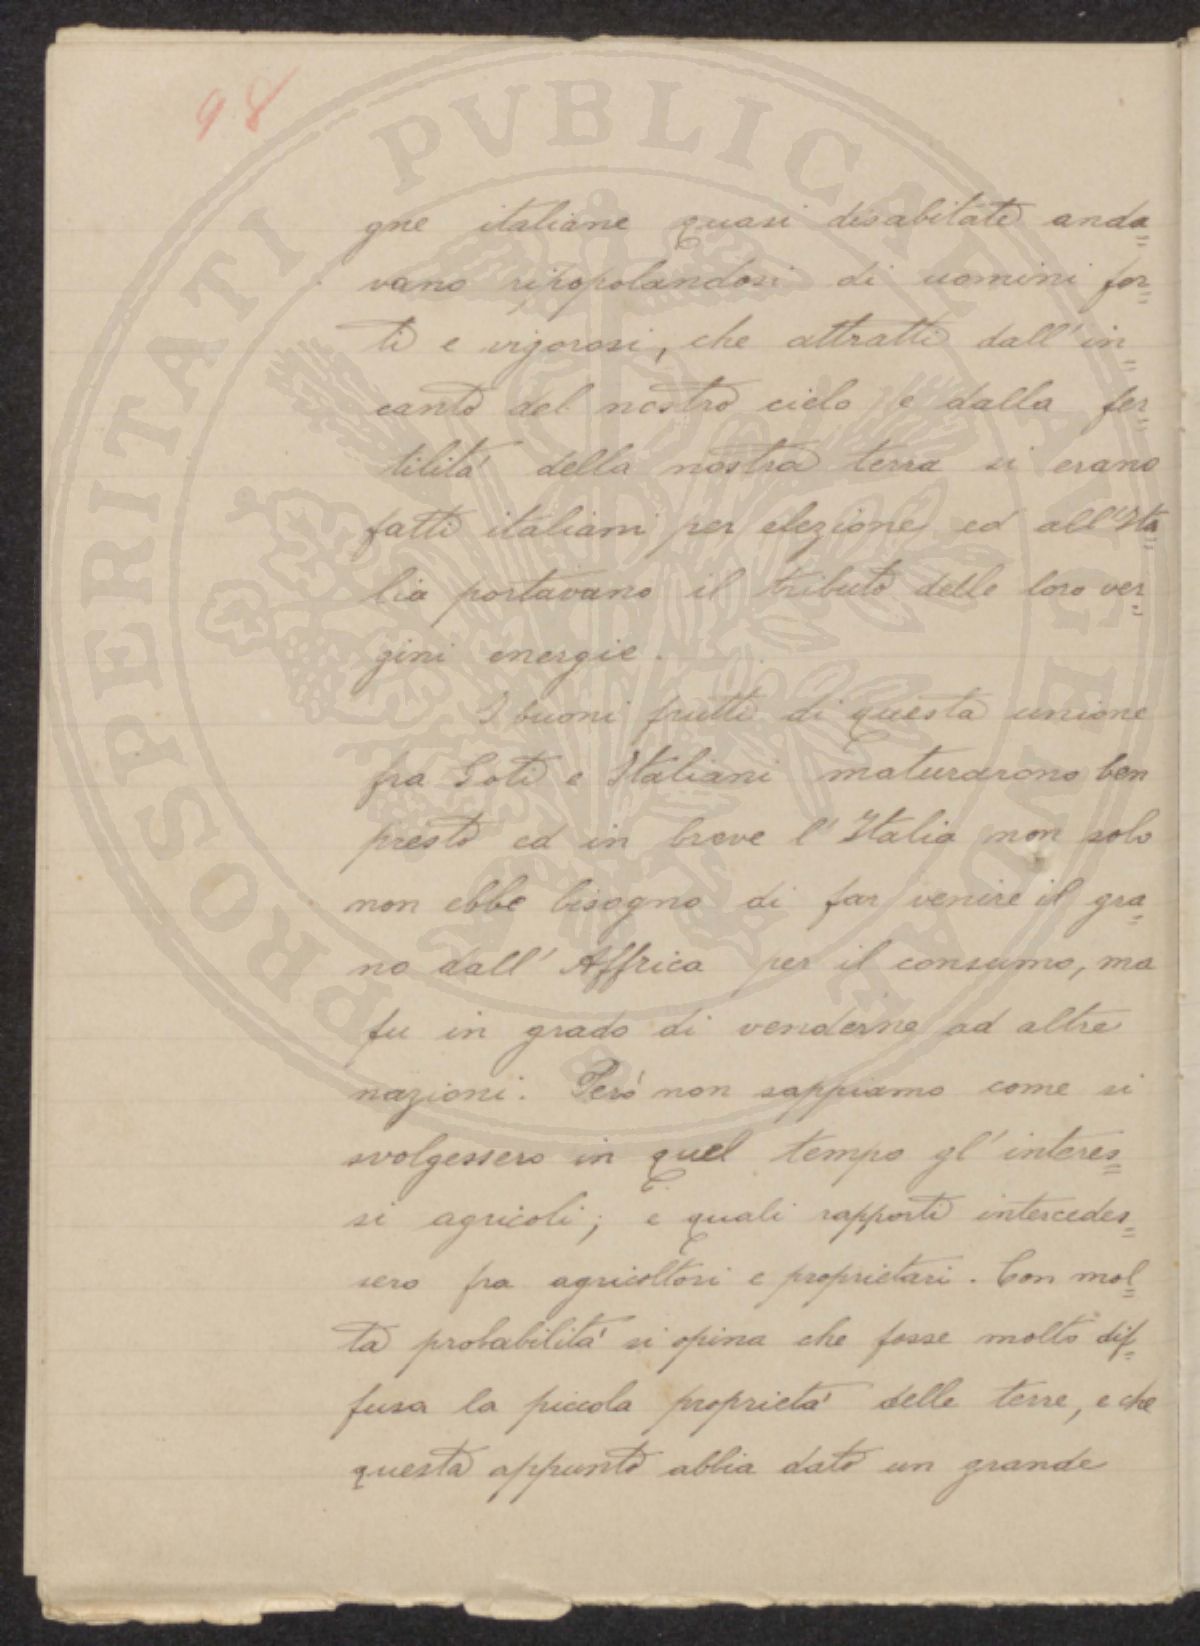 98
gne italiane quasi disabitate anda=
vano ripopolandosi di uomini for=
ti e vigorosi, che attratti dall'in=
canto del nostro cielo e dalla fer=
tilità della nostra terra si erano
fatti italiani per elezione ed all'Ita=
lia portavano il tributo delle loro ver=
gini energie.
I buoni frutti di questa unione
fra Goti e Italiani maturarono ben
presto ed in breve l'Italia non solo
non ebbe bisogno di far venire il gra=
no dall'Affrica per il consumo, ma
fu in grado di venderne ad altre
nazioni. Però non sappiamo come si
svolgessero in quel tempo gl'interes=
si agricoli; e quali rapporti intercedes=
sero fra agricoltori e proprietari. Con mol=
ta probabilità si opina che fosse molto dif=
fusa la piccola proprietà delle terre, e che
questa appunto abbia dato un grande
PROSPERITATI PVBLICAE AVGENDAE